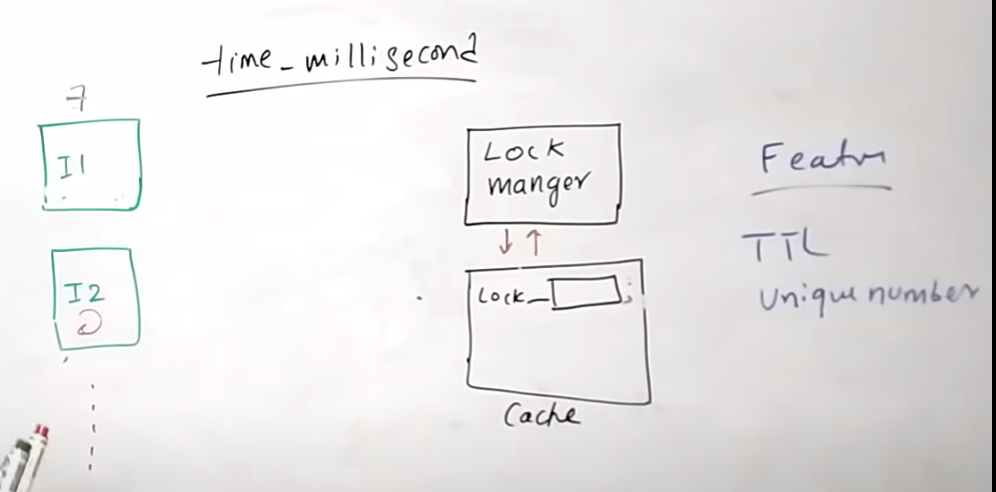 time_millisecond
7
I1
I2
Lock
manger
Lock_
Cache
Featur
TTL
Unique number